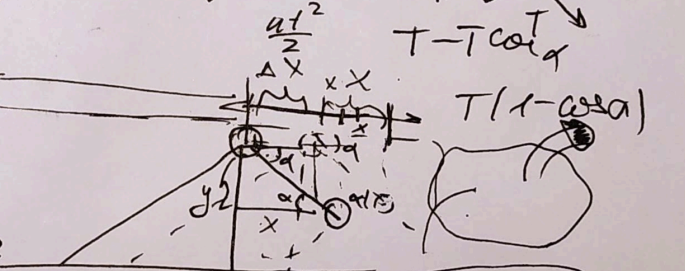 at²/2
T - T cos α
T
Δ X
x X
T(1-cosα)
x
α
α
y2
α
α(x)
x
x